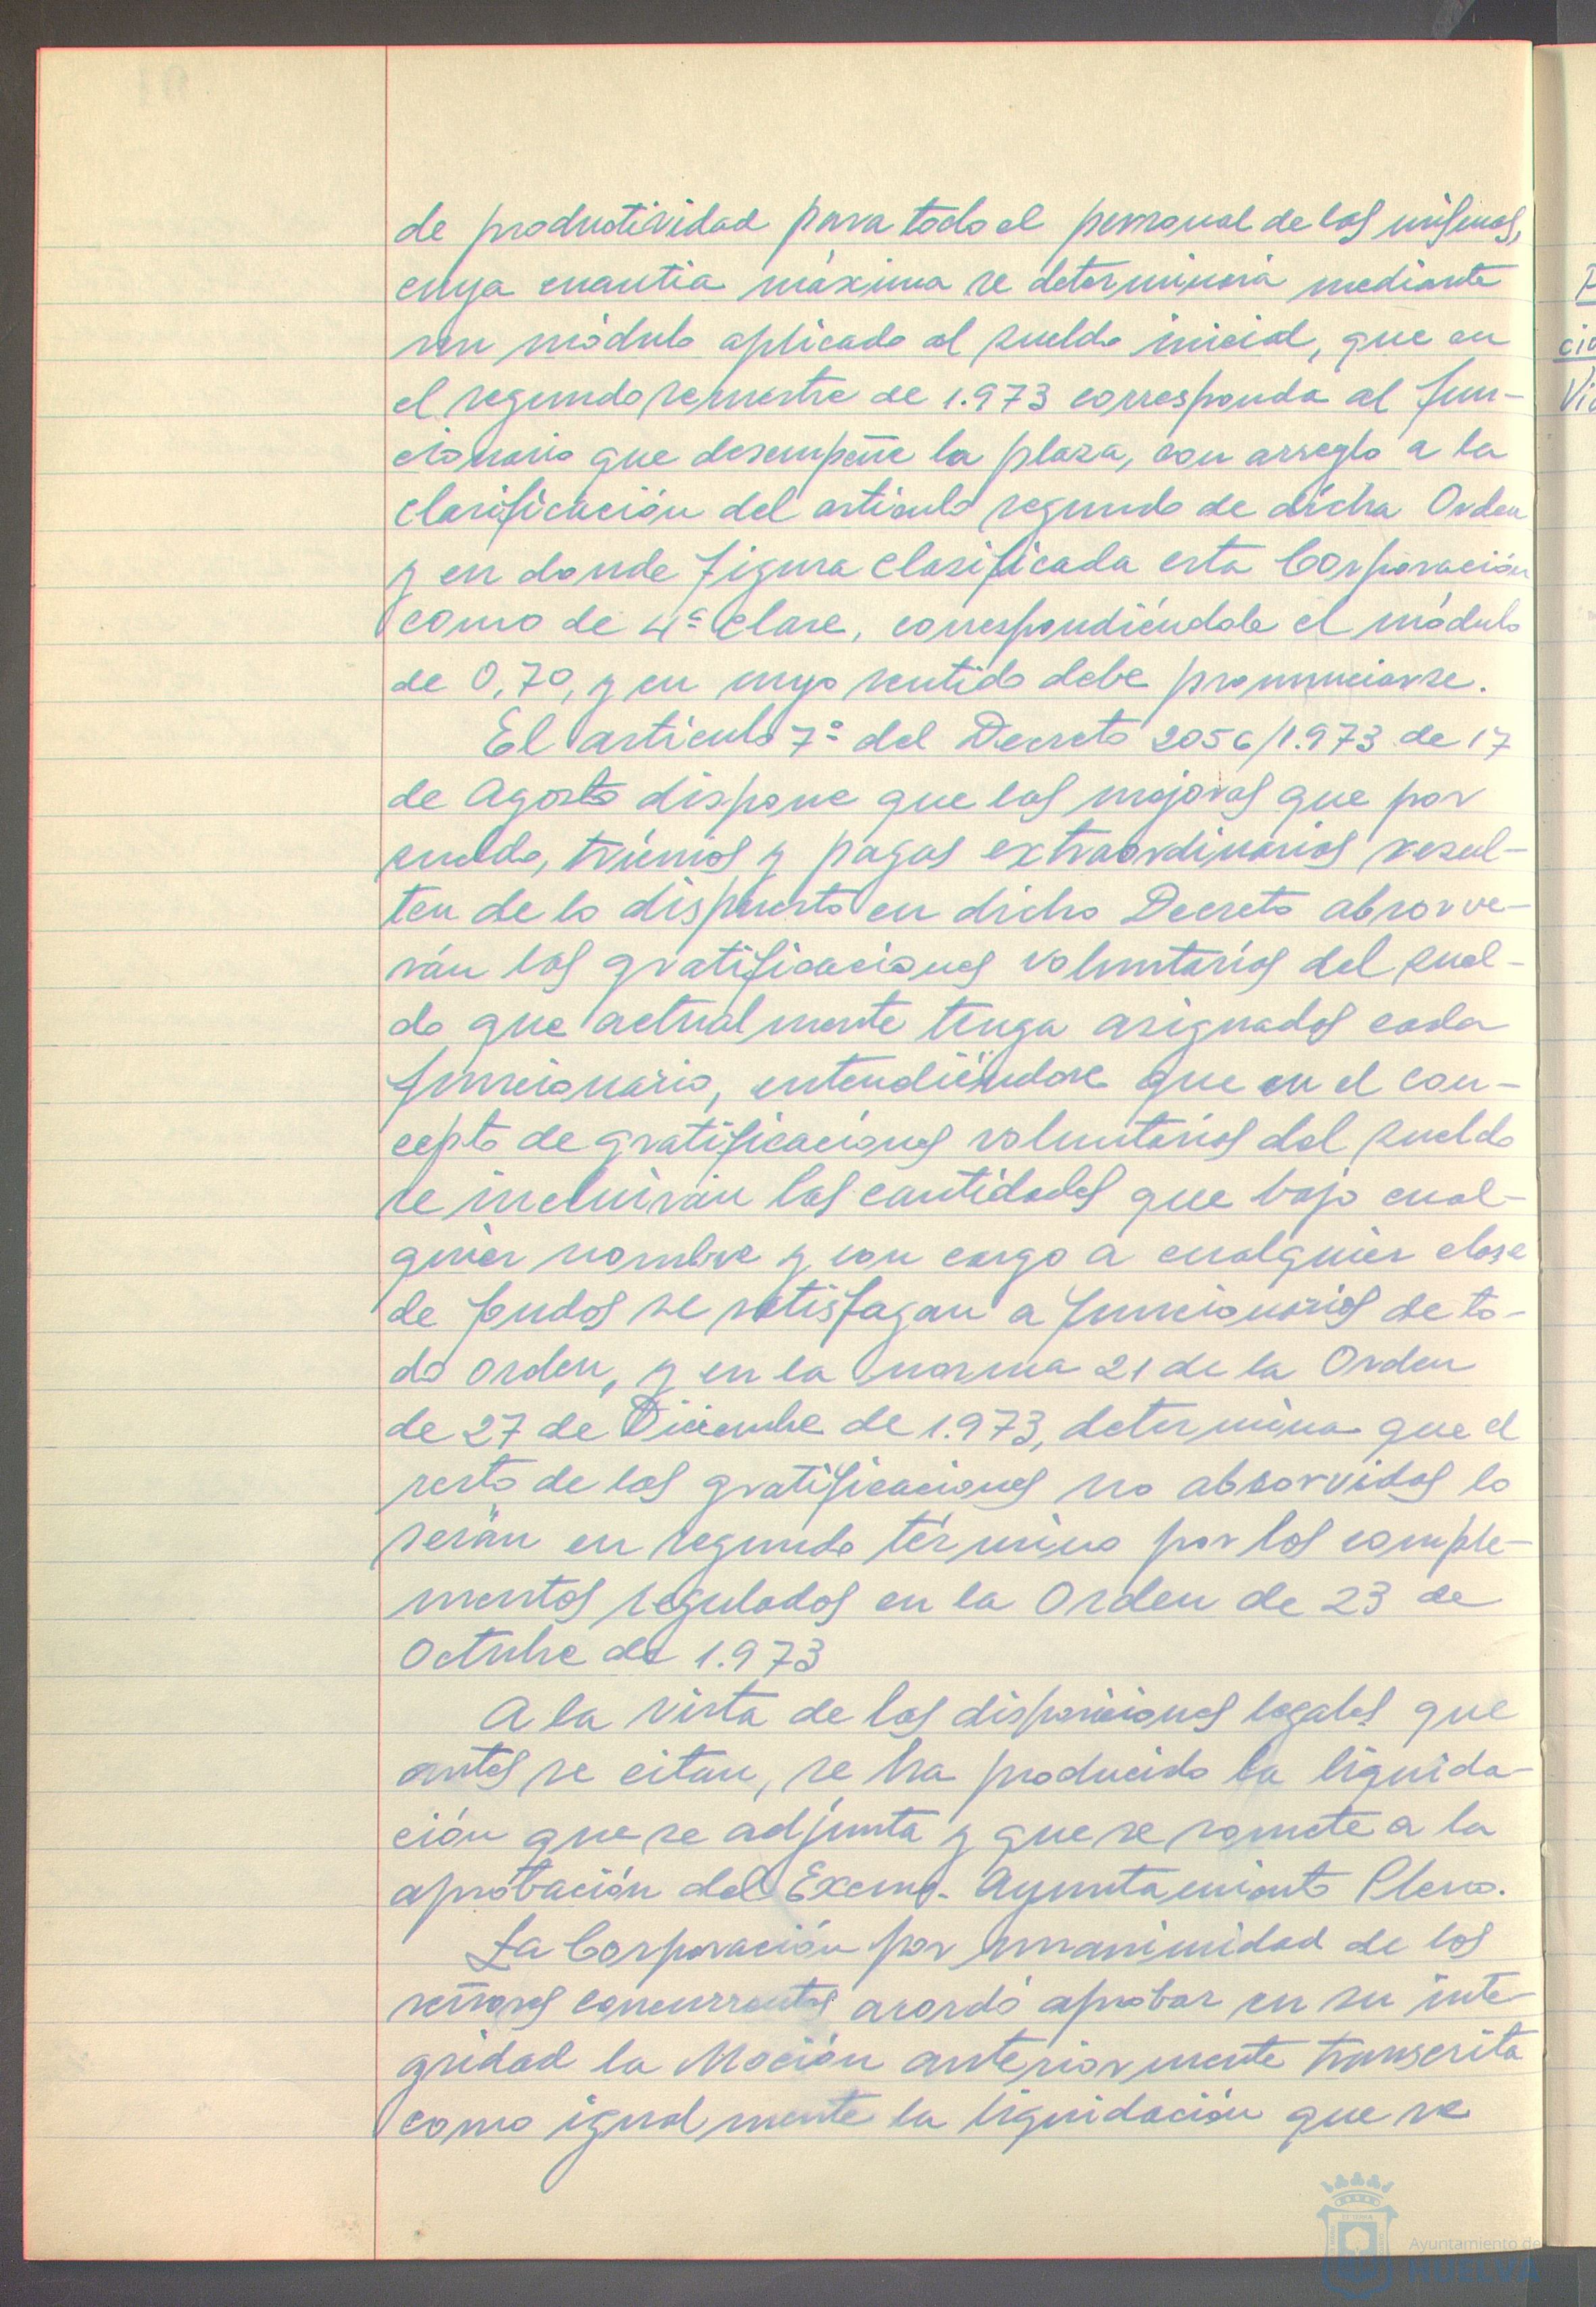 de productividad para todo el personal de las mismas,
cuya cuantia máxima se determinará mediante
un módulo aplicado al sueldo inicial, que en
el segundo semestre de 1.973 corresponda al fun-
cionario que desempeñe la plaza, con arreglo a la
clasificación del articulo segundo de dicha Orden
y en donde figura clasificada esta Corporación
como de 4ª clase, correspondiéndole el módulo
de 0,70, y en cuyo sentido debe pronunciarse.
El articulo 7º del Decreto 2056/1.973 de 17
de Agosto dispone que las mejoras que por
sueldo, trienios y pagas extraordinarias resul-
ten de lo dispuesto en dicho Decreto absorve-
rán las gratificaciones voluntarias del suel-
do que actualmente tenga asignados cada
funcionario, entendiéndose que en el con-
cepto de gratificaciones voluntarias del sueldo
se incluirán las cantidades que bajo cual-
quier nombre y con cargo a cualquier clase
de fondos se satisfagan a funcionarios de to-
do orden, y en la norma 21 de la Orden
de 27 de Diciembre de 1.973, determina que el
resto de las gratificaciones no absorvidas lo
serán en segundo término por los comple-
mentos regulados en la Orden de 23 de
Octubre de 1.973
A la vista de las disposiciones legales que
antes se citan, se ha producido la liquida-
ción que se adjunta y que se somete a la
aprobación del Excmo. Ayuntamiento Pleno.
La Corporación por unanimidad de los
señores concurrentes acordó aprobar en su inte-
gridad la Moción anteriormente transcrita
como igualmente la liquidación que se
Ayuntamiento de
HUELVA